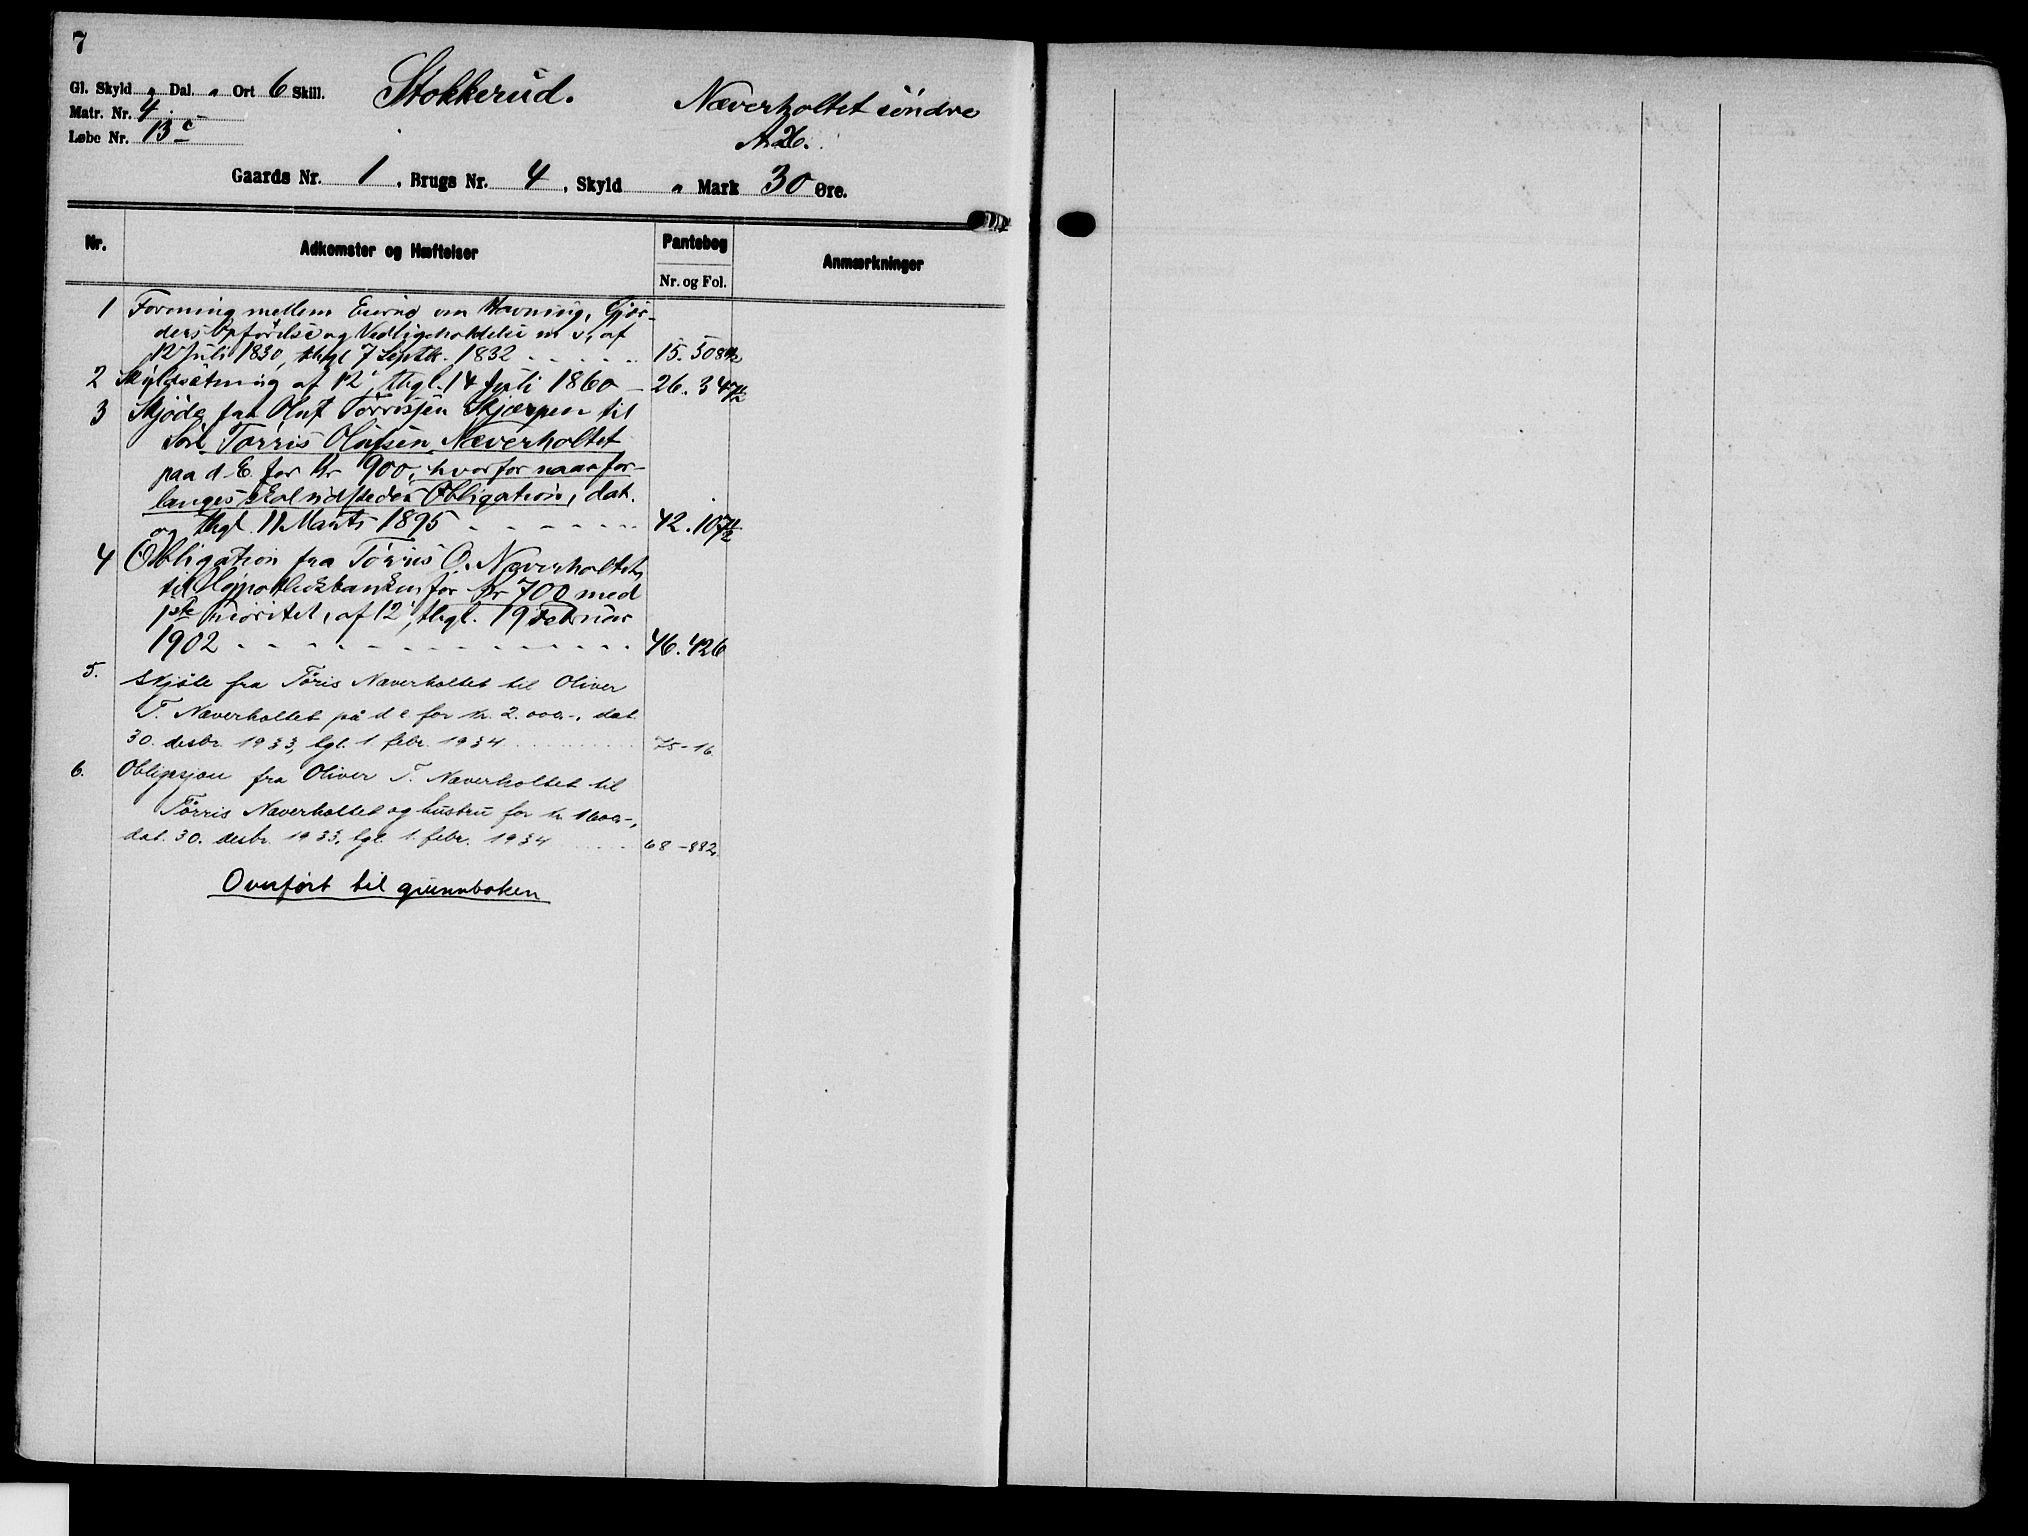 7
Gl. Skyld " Dal. " Ort 6 Skill.
Matr. Nr. 4
Løbe Nr. 13c
Stokkerud.
Næverholtet søndre
Gaards Nr. 1, Brugs Nr. 4, Skyld " Mark 30 Øre.
Nr.
Adkomster og Hæftelser
Pantebog
Nr. og Fol.
Anmærkninger
1 Forening mellem om Havning, Gjær-
ders Opførelse og Vedligeholdelse m v, af
12 Juli 1830, thgl 7 Septbr. 1832 15. 508
2 Skyldsætning af 12, thgl. 14 Juli 1860 26. 347
3 Skjøde fra Oluf Tørrissen Skjærpen til
Søn Tørris Olufsen Næverholtet
paa d E for Kr 900, hvorfor naar for-
langes skal udstedes Obligation, dat.
og thgl. 11 Marts 1895 42. 107
4 Obligation fra Tørris O. Næverholtet
til Hypothekbanken for Kr 700 med
1ste Prioritet, af 12, thgl. 19 Februar
1902 46. 426
5. Skjøte fra Tøris Næverholtet til Oliver
T. Næverholtet på d e for kr. 2.000.-, dat.
30. desbr. 1933, tgl. 1 febr. 1934 75-16
6. Obligasjon fra Oliver T. Næverholtet til
Tørris Næverholtet og hustru for kr 1600.-,
dat. 30. desbr. 1933, tgl. 1. febr. 1934 68-882.
Overført til grunnboken